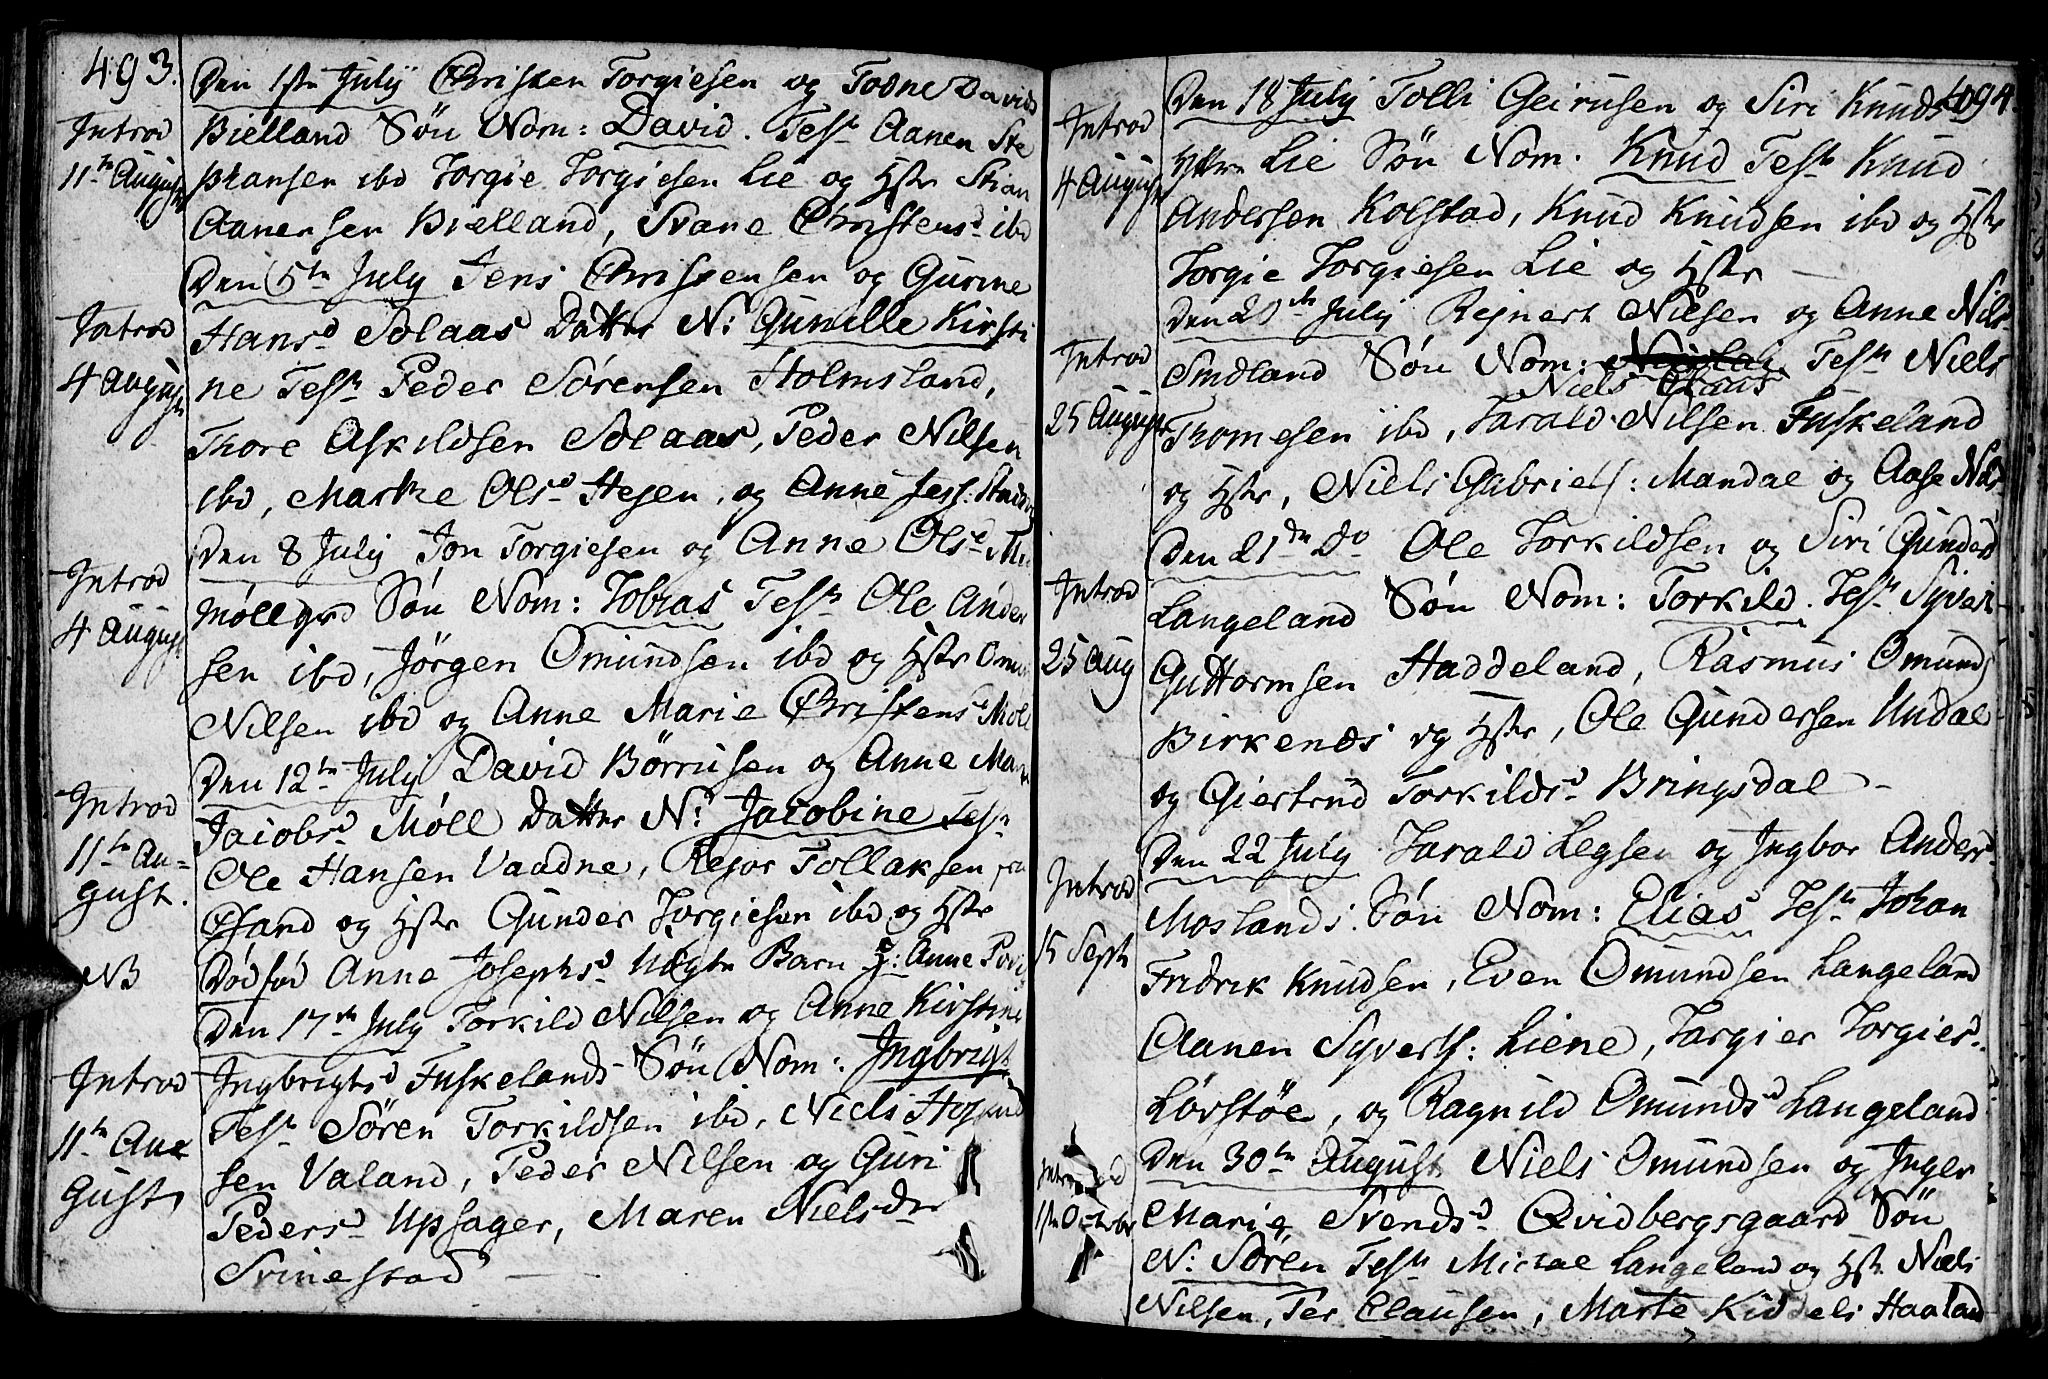 493.
Introd
11te August
Den 1ste July Christen Torgiesen og Todne Davids
Bielland Søn Nom: David. Test. Aanen Ste
phansen ibd Torgie Torgiesen Lie og Hstr Stian
Aanensen Bielland, Svane Christensd ibd
Introd
4 August
Den 5te July Jens Christensen og Gurine
Hansd Solaas Datter N: Gunille Kirsti
ne Test Peder Sørensen Holmsland,
Thore Askildsen Solaas, Peder Nilsen
ibd, Marthe Olsd Stesen, og Anne
Introd
4 August
Den 8 July Jon Torgiesen og Anne Olsd
Møllgrd Søn Nom: Tobias Test Ole Ander
sen ibd, Jørgen Omundsen ibd og Hstr
Nilsen ibd og Anne Marie Christensd Møll
Introd
11te Au-
gust.
Den 12te July David Børrusen og Anne
Jacobsd Møll Datter N: Jacobine Test
Ole Hansen Vaadne, Rejor Tollaksen
og Hstr Gunder Torgiesen ibd og Hstr
NB
Dødfød Anne Josephsd Uægte Barn
Introd
11te Au
gust
Den 17de July Torkild Nilsen og Anne Kirstine
Ingbrigtsd Fuskelands Søn Nom: Ingbrigt
Test Søren Torkildsen ibd, Niels
sen Valand, Peder Nilsen og Guri
Pedersd Upsager, Maren Nielsdr
Svinestad
494
Introd
4 August
Den 18 July Tolli Geirusen og Siri Knudsd
Lie Søn Nom. Knud Test Knud
Andersen Kolstad, Knud Knudsen ibd og Hstr
Torgie Torgiesen Lie og Hstr
Introd
25 August
Den 20de July Rejnert Nielsen og Anne Nils
Smdland Søn Nom: Test Niels
Niels Claas
Thomesen ibd, Tarald Nilsen Fuskeland
og Hstr, Niels Gabriels: Mandal og Aase Nilsd
Introd
25 Aug
Den 21de Do Ole Torkildsen og Siri Gundersd
Langeland Søn Nom: Torkild. Test Syver
Guttormsen Haddeland, Rasmus Omunds
Birkenes og Hstr, Ole Gundersen Undal
og Giertrud Torkildsd Bringsdal
Introd
15 Sept
Den 22 July Tarald Legsen og Ingbor Andersd
Moslands Søn Nom: Elias Test Johan
Fridrik Knudsen, Even Omundsen Langeland
Aanen Syverts: Liene, Targier Torgiers
Lørstøe, og Ragnild Omundsd Langeland
Introd
1ste October
Den 30te August Niels Omundsen og Inger
Marie Svendsd Qvidbergsgaard Søn
N: Søren Test Michal Langeland og Hstr Niels
Nilsen, Per Clausen, Marte Haaland